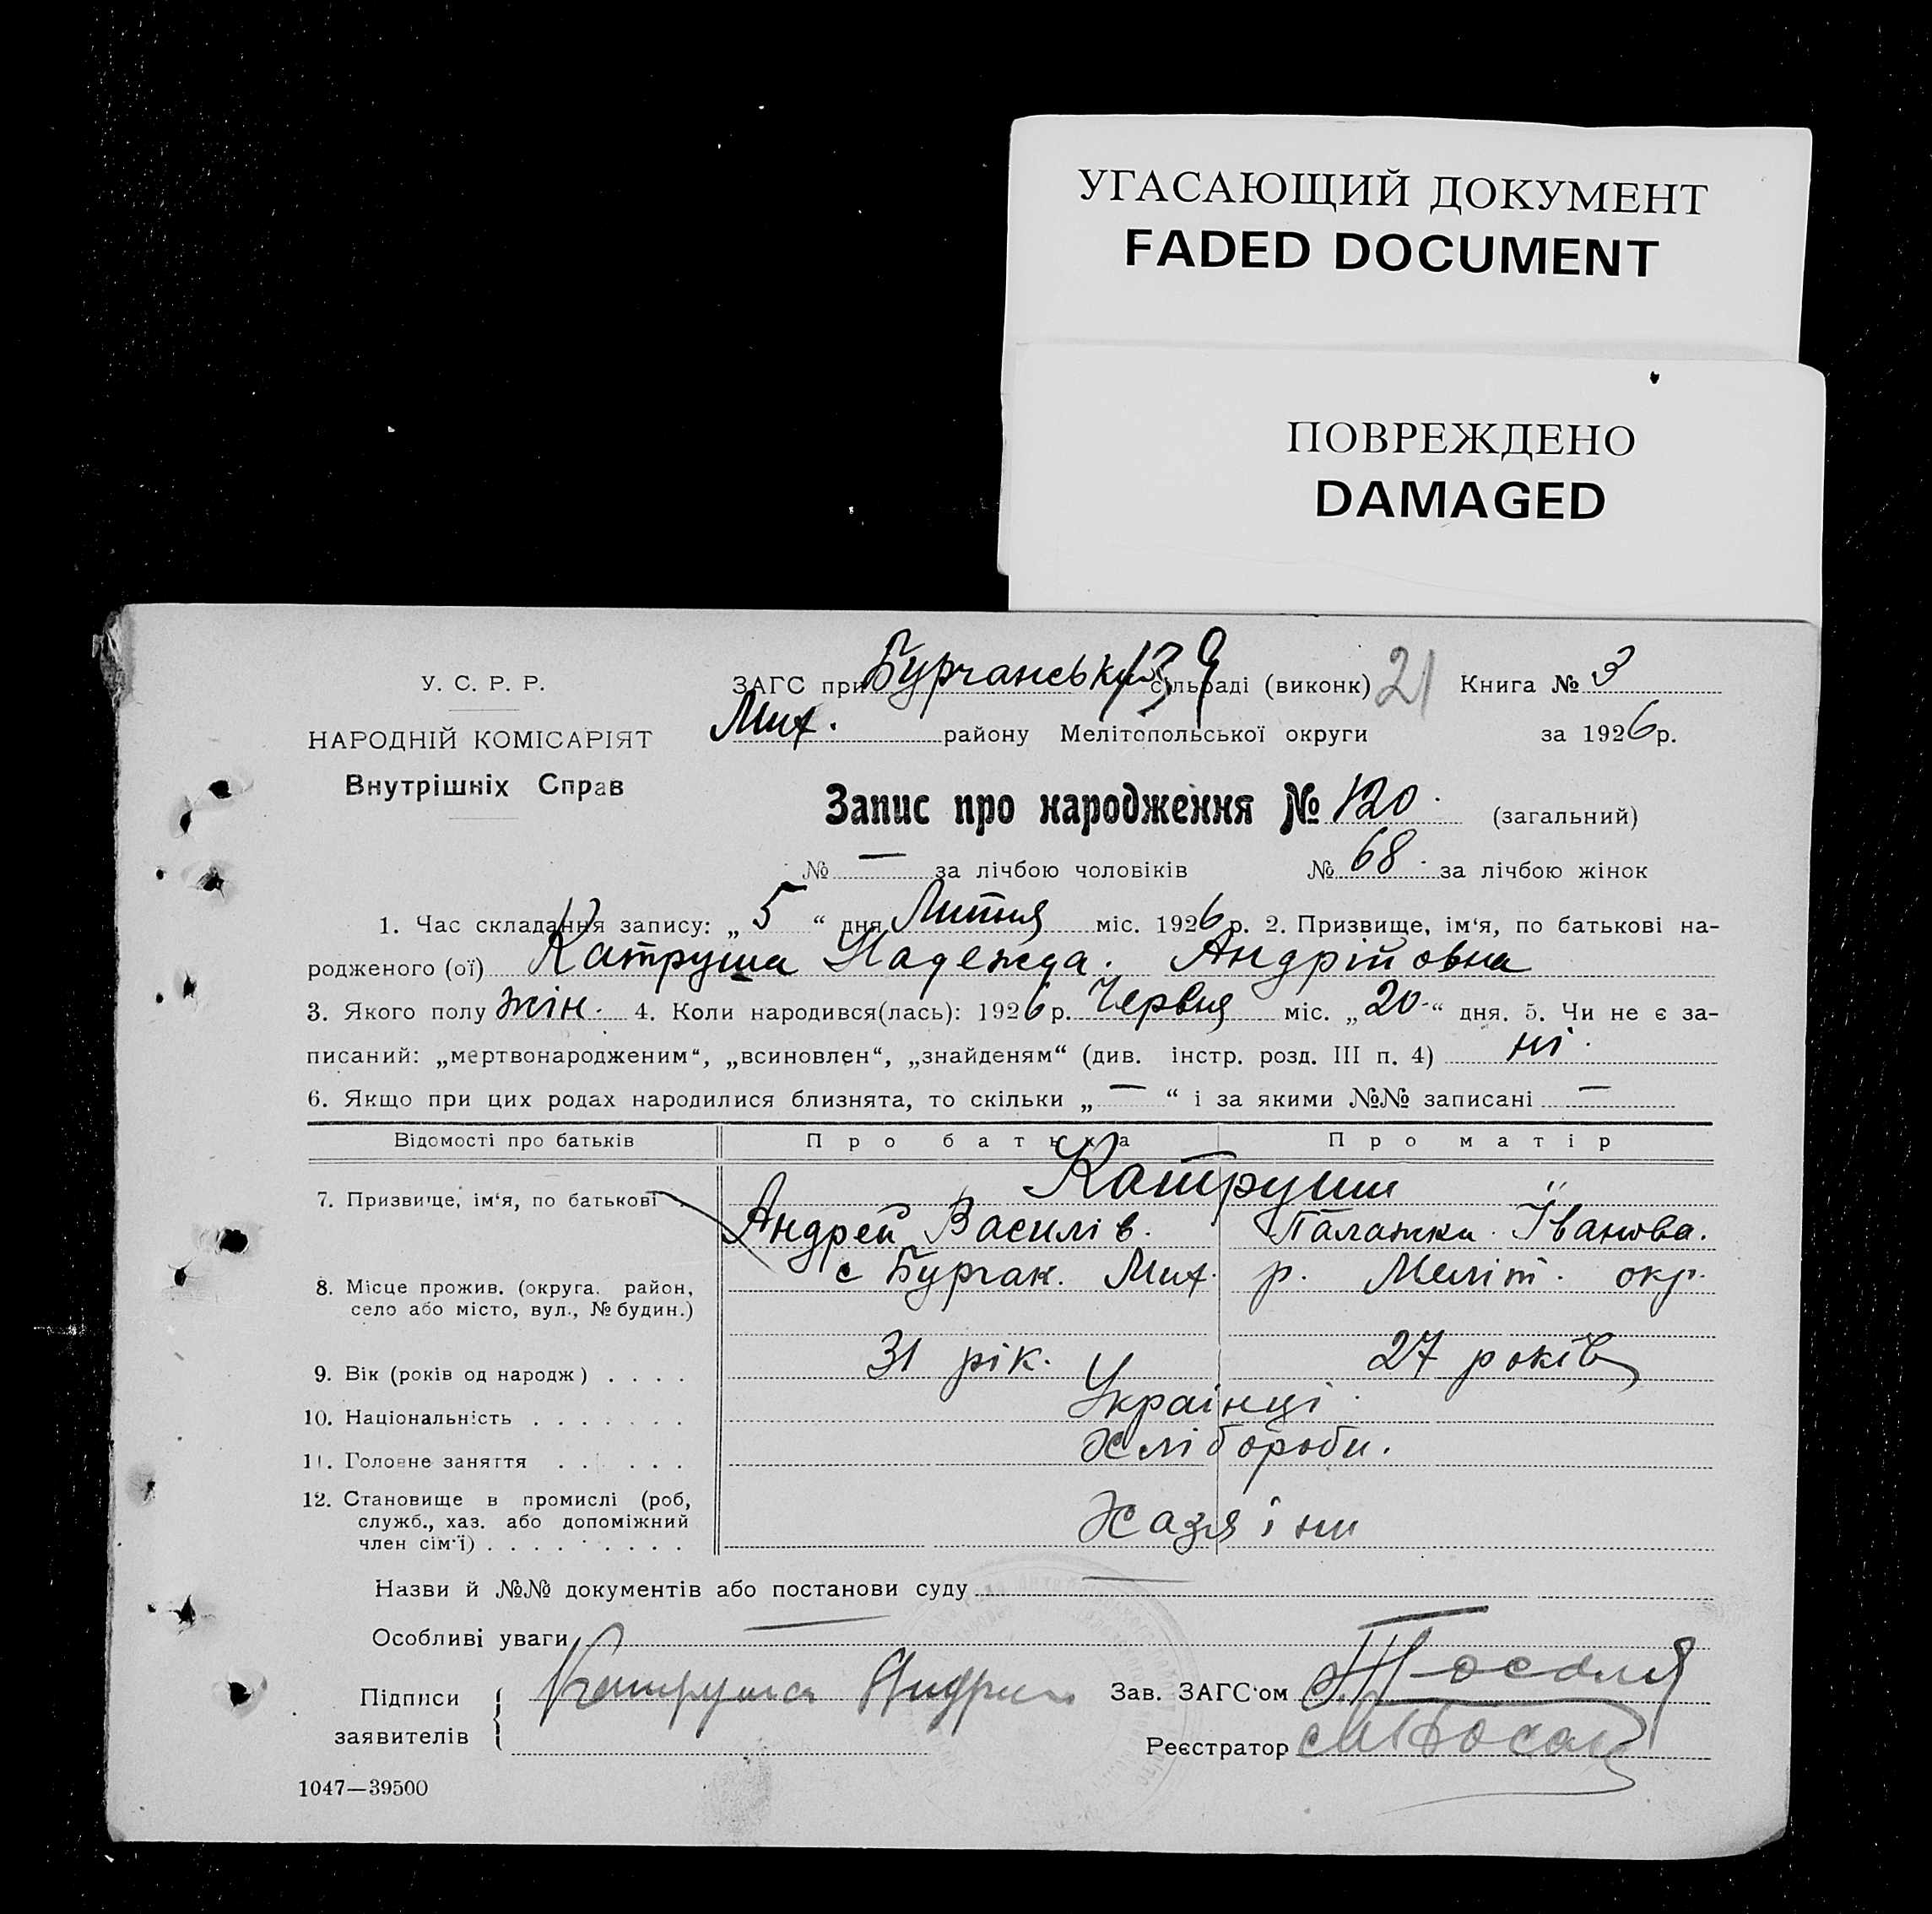 УГАСАЮЩИЙ ДОКУМЕНТ
FADED DOCUMENT
ПОВРЕЖДЕНО
DAMAGED
У. С. Р. Р.
НАРОДНІЙ КОМІСАРІЯТ
Внутрішніх Справ
ЗАГС при Бурчанській сільраді (виконк) 21 Книга № 3
139
Мих. району Мелітопольської округи за 1926 р.
Запис про народження № 120. (загальний)
№ — за лічбою чоловіків № 68. за лічбою жінок
1. Час складання запису: „ 5 “ дня Липня міс. 1926 р. 2. Призвище, ім‘я, по батькові на-
родженого (ої) Катруша Надежда. Андрійовна
3. Якого полу жін. 4. Коли народився(лась): 1926 р. Червня міс. „ 20 “ дня. 5. Чи не є за-
писаний: „мертвонародженим“, „всиновлен“, „знайденям“ (див. інстр. розд. III п. 4) ні.
6. Якщо при цих родах народилися близнята, то скільки „ — “ і за якими №№ записані —
Відомості про батьків Про батька Про матір
7. Призвище, ім‘я, по батькові Катруши
Андрей Василів. Палажка Іванова.
8. Місце прожив. (округа, район, село або місто, вул., № будин.) с Бурчак. Мих. р. Меліт. окр.
9. Вік (років од народж) . . . . 31 рік. 27 років
10. Національність . . . . . . . Українці.
11. Головне заняття . . . . . . Хлібороби.
12. Становище в промислі (роб,
служб., хаз. або допоміжний
член сім‘ї) . . . . . . . . . Хазяїни
Назви й №№ документів або постанови суду —
Особливі уваги —
Підписи заявителів Катруша Андрий Зав. ЗАГС‘ом
Реєстратор
1047—39500